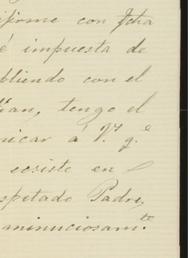 iforme con fcha
é impuesta de
pliendo con el
ían, tengo el
nicar á V. q.e
cosiste en
spetado Padre,
minuciosam.te